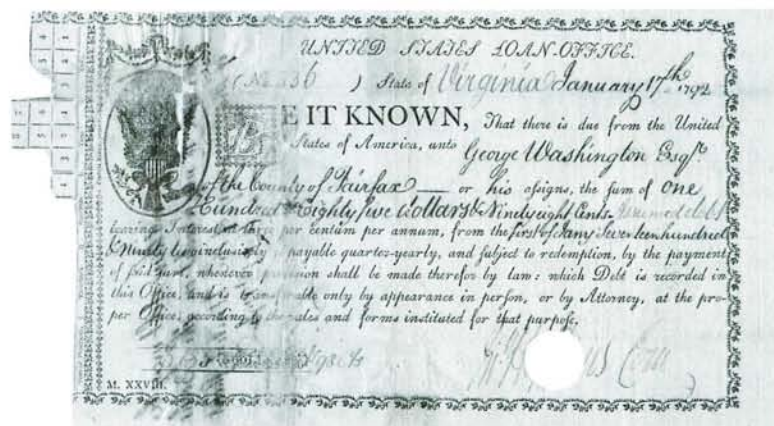 UNITED STATES LOAN-OFFICE.
(No 36 ) State of Virginia January 17th 1792
BE IT KNOWN, That there is due from the United
States of America, unto George Washington Esqr.
of the County of Fairfax — or his assigns, the sum of One
Hundred & Eighty five dollars & Ninety eight Cents
bearing Interest at three per centum per annum, from the first of Jany Seventeen hundred
& Ninety two inclusively payable quarter-yearly, and subject to redemption, by the payment
of said sum, whenever provision shall be made therefor by law: which Debt is recorded in
this Office, and is transferable only by appearance in person, or by Attorney, at the pro-
per Office, according to the rules and forms instituted for that purpose.
M. XXVIII.